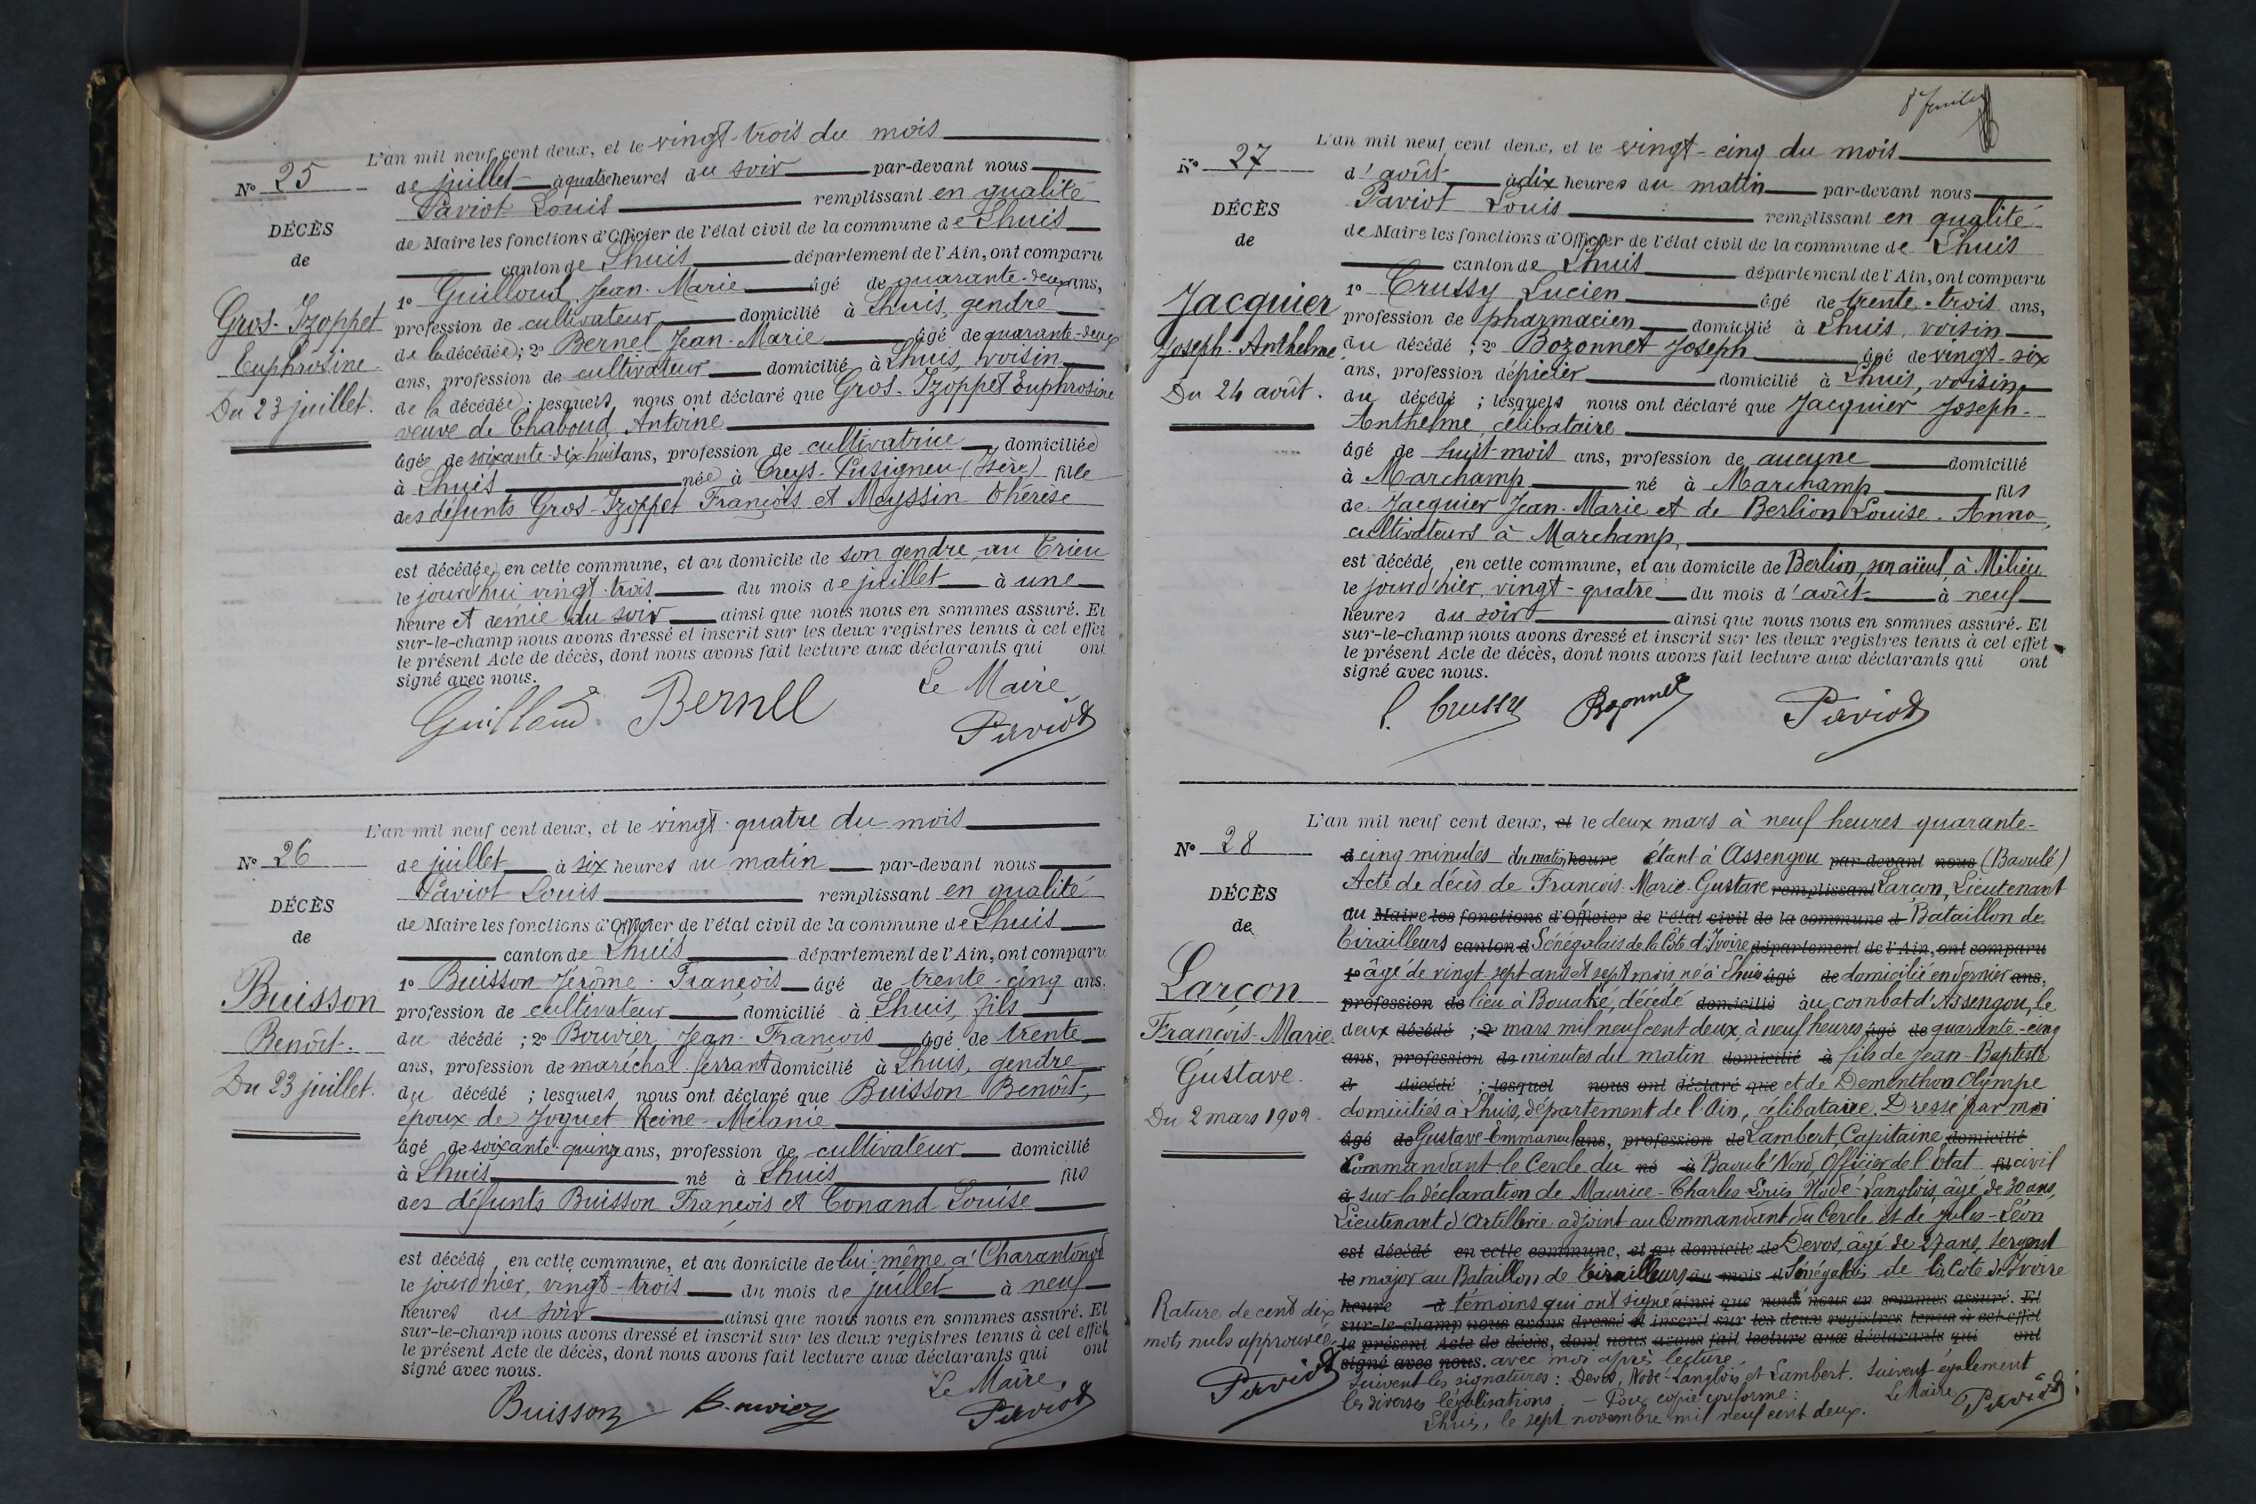 L'an mil neuf cent deux, et le vingt-trois du mois
N° 25
de juillet à quatre heures du soir par-devant nous
Paviot Louis remplissant en qualité
DÉCÈS
de Maire les fonctions d'Officier de l'état civil de la commune de Lhuis
de
canton de Lhuis département de l'Ain, ont comparu
1° Guilloud Jean-Marie âgé de quarante-deux ans,
Gros-Izoppet
profession de cultivateur domicilié à Lhuis, gendre
de la décédée; 2° Bernel Jean-Marie âgé de quarante-deux
Euphrosine
ans, profession de cultivateur domicilié à Lhuis, voisin
Du 23 juillet.
de la décédée; lesquels nous ont déclaré que Gros-Izoppet Euphrosine
veuve de Chaboud Antoine
âgée de soixante-dix-huit ans, profession de cultivatrice, domiciliée
à Lhuis née à Creys-Pusigneu (Isère) fille
des défunts Gros-Izoppet François et Meyssin Thérèse
est décédée, en cette commune, et au domicile de son gendre, au Crieu
le jourd'hui vingt-trois du mois de juillet à une
heure et demie du soir ainsi que nous nous en sommes assuré. Et
sur-le-champ nous avons dressé et inscrit sur les deux registres tenus à cet effet
le présent Acte de décès, dont nous avons fait lecture aux déclarants qui ont
signé avec nous.
Le Maire,
Guilloud Bernel Paviot
L'an mil neuf cent deux, et le vingt-quatre du mois
N° 26
de juillet à six heures du matin par-devant nous
Paviot Louis remplissant en qualité
DÉCÈS
de Maire les fonctions d'Officier de l'état civil de la commune de Lhuis
de
canton de Lhuis département de l'Ain, ont comparu
1° Buisson Jérôme-François âgé de trente-cinq ans,
Buisson
profession de cultivateur domicilié à Lhuis, fils
du décédé; 2° Bouvier Jean-François âgé de trente
Benôit.
ans, profession de maréchal ferrant domicilié à Lhuis, gendre
Du 23 juillet.
du décédé; lesquels nous ont déclaré que Buisson Benoît,
époux de Joguet Reine-Mélanie
âgé de soixante-quinze ans, profession de cultivateur domicilié
à Lhuis né à Lhuis fils
des défunts Buisson François et Conand Louise
est décédé, en cette commune, et au domicile de lui-même à Charantonod
le jourd'hier, vingt-trois du mois de juillet à neuf
heures du soir ainsi que nous nous en sommes assuré. Et
sur-le-champ nous avons dressé et inscrit sur les deux registres tenus à cet effet
le présent Acte de décès, dont nous avons fait lecture aux déclarants qui ont
signé avec nous.
Le Maire,
Buisson Bouvier Paviot
L'an mil neuf cent deux, et le vingt-cinq du mois
N° 27
d'août à dix heures du matin par-devant nous
Paviot Louis remplissant en qualité
DÉCÈS
de Maire les fonctions d'Officier de l'état civil de la commune de Lhuis
de
canton de Lhuis département de l'Ain, ont comparu
1° Crussy Lucien âgé de trente-trois ans,
Jacquier
profession de pharmacien domicilié à Lhuis, voisin
Joseph-Anthelme
du décédé; 2° Bozonnet Joseph âgé de vingt-six
ans, profession d'épicier domicilié à Lhuis, voisin
Du 24 août.
du décédé; lesquels nous ont déclaré que Jacquier Joseph-
Anthelme, célibataire
âgé de huit mois ans, profession de aucune domicilié
à Marchamp né à Marchamp fils
de Jacquier Jean-Marie et de Berlion Louise-Anna,
cultivateurs à Marchamp,
est décédé, en cette commune, et au domicile de Berlion, son aïeul, à Milieu
le jourd'hier, vingt-quatre du mois d'août à neuf
heures du soir ainsi que nous nous en sommes assuré. Et
sur-le-champ nous avons dressé et inscrit sur les deux registres tenus à cet effet
le présent Acte de décès, dont nous avons fait lecture aux déclarants qui ont
signé avec nous.
L. Crussy Bozonnet Paviot
L'an mil neuf cent deux, et le deux mars à neuf heures quarante-
N° 28
à cinq minutes du matin heure étant à Assengou par-devant nous (Baoulé)
Acte de décès de François-Marie-Gustave remplissant Larçon, Lieutenant
DÉCÈS
au Maire les fonctions d'Officier de l'état civil de la commune d Bataillon de
de
Tirailleurs canton d Sénégalais de la Côte d'Ivoire département de l'Ain, ont comparu
1° âgé de vingt sept ans et sept mois né à Lhuis âgé de domicilié en dernier ans,
Larçon
profession de lieu à Bouaké, décédé domicilié au combat d'Assengou, le
François-Marie
deux décédé; 2° mars mil neuf cent deux, à neuf heures âgé de quarante-cinq
ans, profession de minutes du matin domicilié à fils de Jean-Baptiste
Gustave.
d décédé; lesquel nous ont déclaré que et de Dementhon Olympe
Du 2 mars 1902.
domiciliés à Lhuis, département de l'Ain, célibataire. Dressé par moi
âgé de Gustave-Emmanuel ans, profession de Lambert, Capitaine domicilié
Commandant le Cercle du né à Baoulé Nord, Officier de l'état fil civil
à sur la déclaration de Maurice-Charles-Louis Nodé-Langlois, âgé de 30 ans,
Lieutenant d'Artillerie adjoint au Commandant du Cercle et de Jules-Léon
est décédé en cette commune, et au domicile de Devos, âgé de 27 ans, sergent
le major au Bataillon de Tirailleurs du mois d Sénégalais de la Côte d'Ivoire
heure d témoins qui ont signé ainsi que nous nous en sommes assuré. Et
Rature de cent dix
sur-le-champ nous avons dressé et inscrit sur les deux registres tenus à cet effet
mots nuls approuvée
le présent Acte de décès, dont nous avons fait lecture aux déclarants qui ont
Paviot
signé avec nous. avec moi après lecture
Suivent les signatures: Devos, Nodé-Langlois et Lambert. Suivent également
les diverses légalisations. - Pour copie conforme:
Lhuis, le sept novembre mil neuf cent deux.
Le Maire Paviot